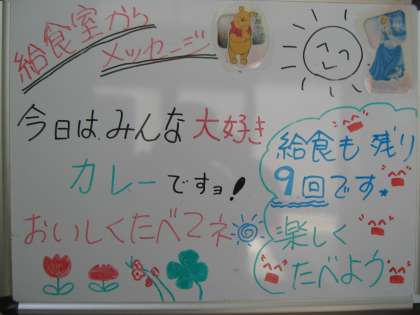 給食室から
メッセージ
今日は、みんな大好き
カレーですョ!
おいしくたべてネ
給食も残り
9回です。
楽しく
たべよう